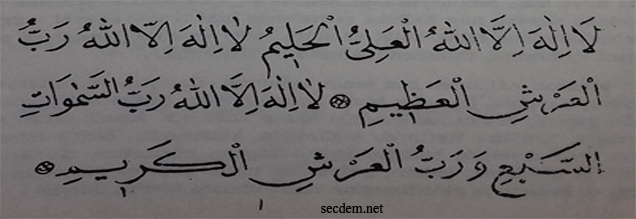 لَا اِلٰهَ اِلَّا اللهُ الْعَلِىُّ الْحَلِيمُ لَا اِلٰهَ اِلَّا اللهُ رَبُّ
الْعَرْشِ الْعَظِيمِ ۞ لَا اِلٰهَ اِلَّا اللهُ رَبُّ السَّمٰوَاتِ
السَّبْعِ وَرَبُّ الْعَرْشِ الْكَرِيمِ ۞
secdem.net